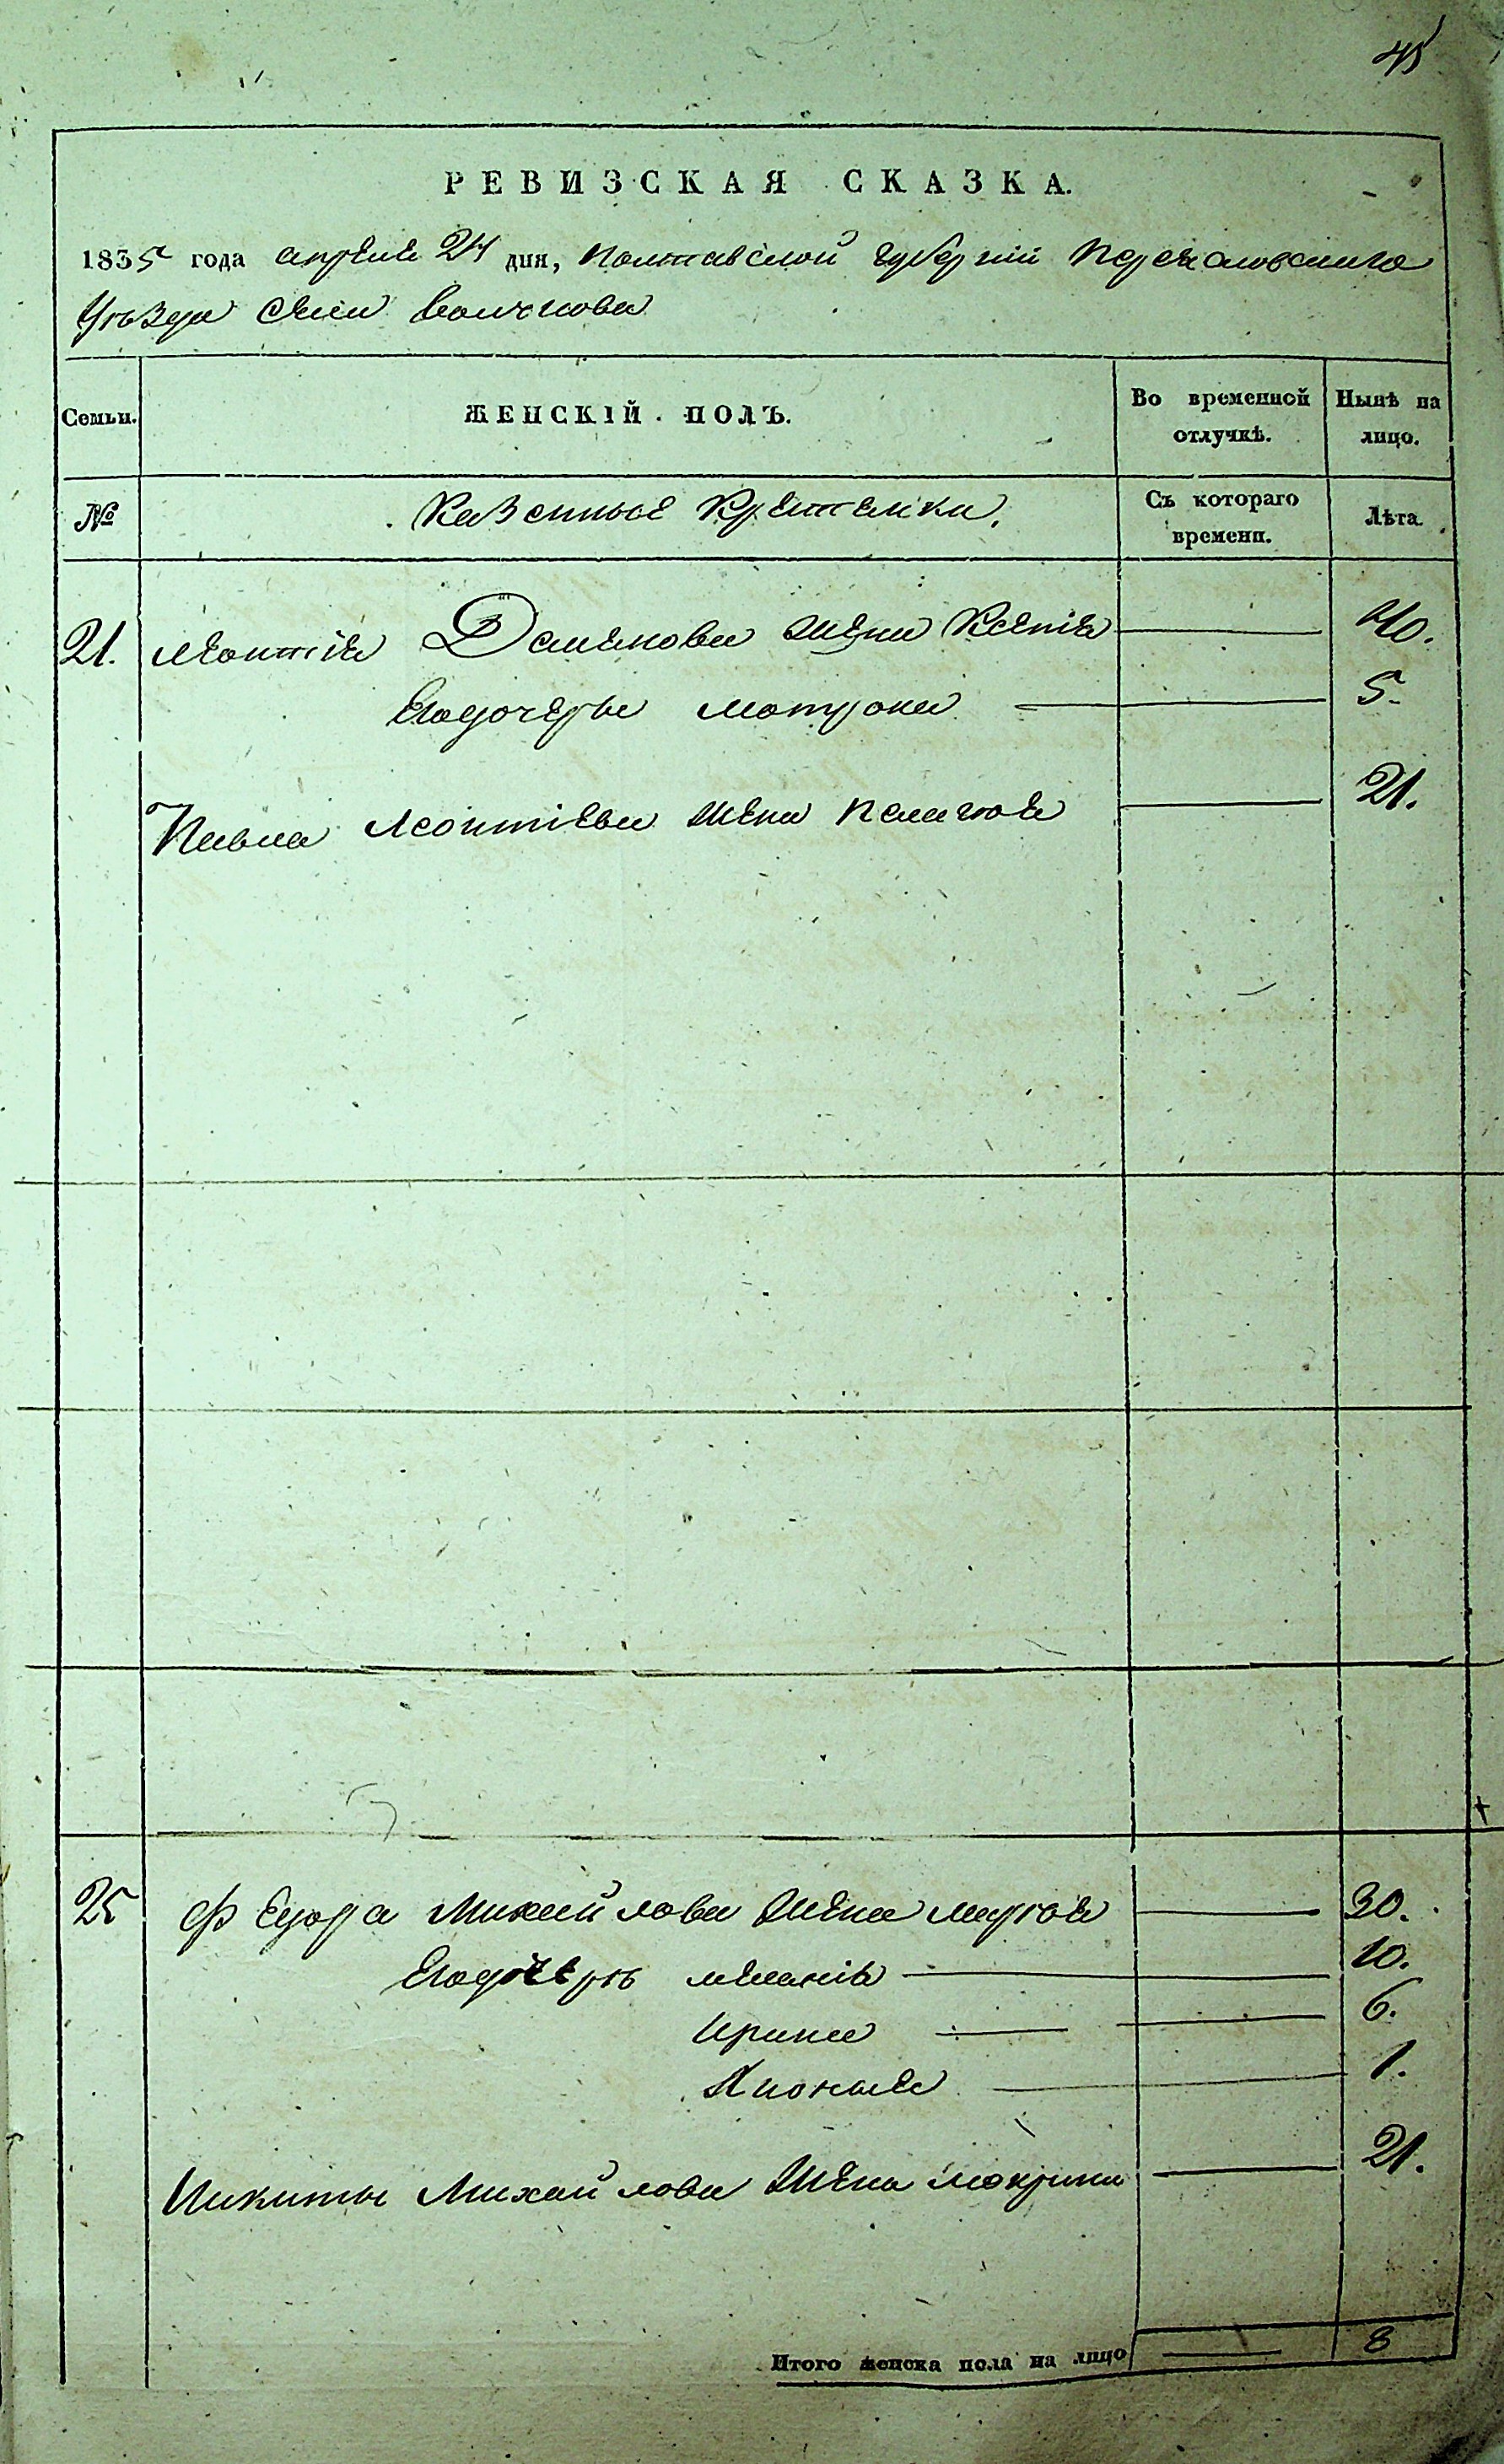 45
РЕВИЗСКАЯ СКАЗКА.
1835 года апреля 24 дня, Полтавской губернии Переяславскаго
уѣзда села Волчкова
Семьи. ЖЕНСКІЙ ПОЛЪ. Во временной отлучкѣ. Нынѣ на лицо.
№ Казенные Крестьянки. Съ котораго времени. Лѣта.
21. Леонтія Дамянова жена Ксенія 40.
Его дочерь Мотрона 5.
Павла Леонтіева жена Пелагѣя 21.
25 Федора Михайлова жена Марѳа 30.
Его дочерь Меланія 10.
Ирина 6.
1.
Никиты Михайлова жена Мокрина 21.
Итого женска пола на лицо 8